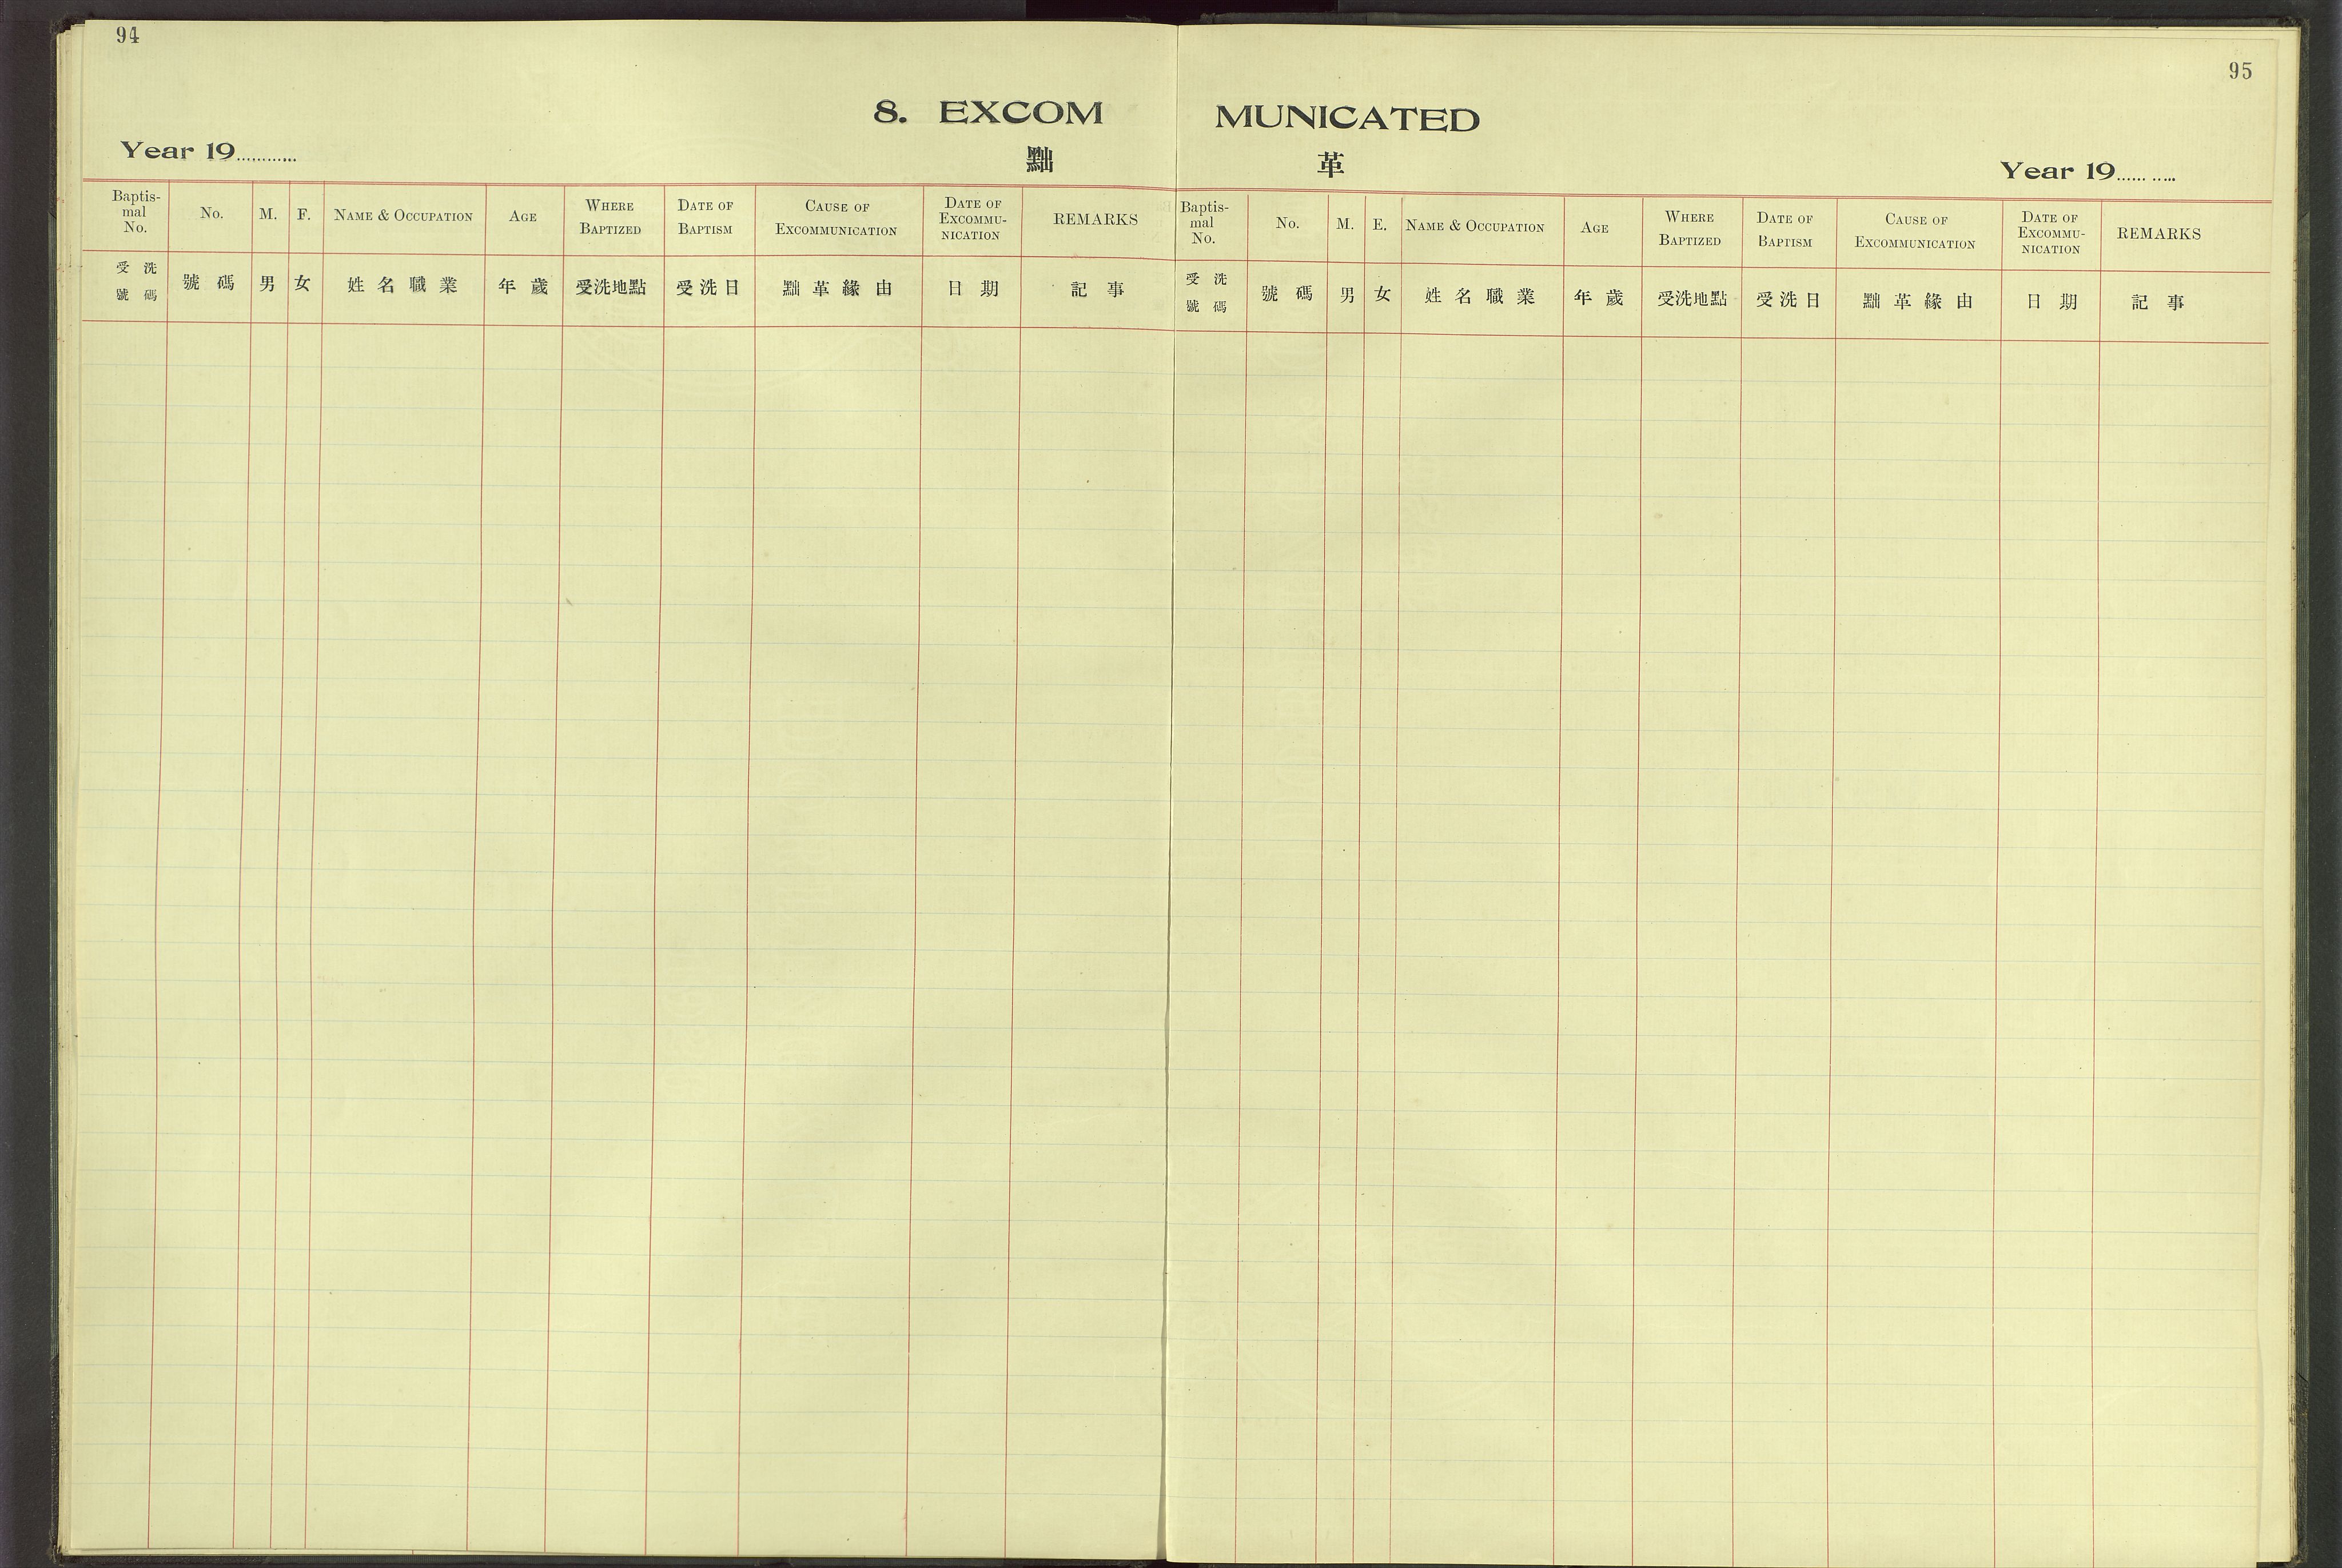 94
8. EXCOM
Year 19............
黜
Baptis-
mal
No.
No.
M.
F.
NAME & OCCUPATION
AGE
WHERE
BAPTIZED
DATE OF
BAPTISM
CAUSE OF
EXCOMMUNICATION
DATE OF
EXCOMMU-
NICATION
REMARKS
受 洗
號 碼
號 碼
男
女
姓 名 職 業
年 歲
受洗地點
受 洗 日
黜 革 緣 由
日 期
記 事
95
MUNICATED
革
Year 19...... .....
Baptis-
mal
No.
No.
M.
E.
NAME & OCCUPATION
AGE
WHERE
BAPTIZED
DATE OF
BAPTISM
CAUSE OF
EXCOMMUNICATION
DATE OF
EXCOMMU-
NICATION
REMARKS
受 洗
號 碼
號 碼
男
女
姓 名 職 業
年 歲
受洗地點
受 洗 日
黜 革 緣 由
日 期
記 事